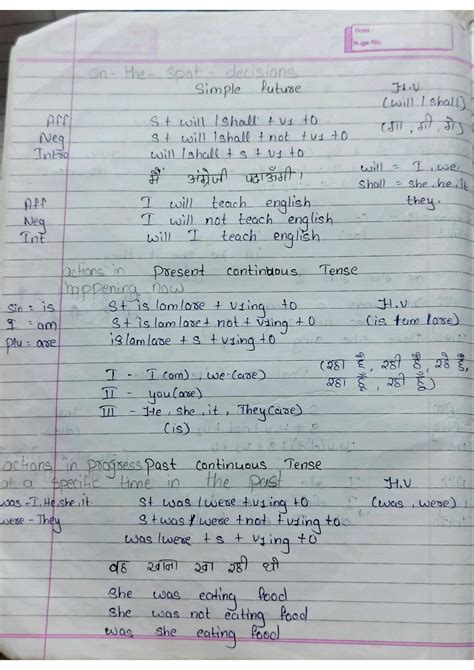 Date :
Page No.
on - the - spot - decisions
Simple future H.V
(will / shall)
Aff S + will / shall + v1 + O
(गा, गी, गे)
Neg S + will / shall + not + v1 + O
Intro will / shall + s + v1 + O
मैं अंग्रेजी पढ़ाऊँगी।
will = I, we
shall = she, he, it
they.
Aff I will teach english
Neg I will not teach english
Int will I teach english
actions in Present continuous Tense
happening now
Sin = is S + is/am/are + v1ing + O H.V
I = am S + is/am/are + not + v1ing + O (is /am /are)
Plu = are is/am/are + s + v1ing + O
(रहा हूँ, रही हूँ, रहे हैं,
रहा हूँ, रही हूँ)
I - I (am), we (are)
II - you (are)
III - He, she, it, They (are)
(is)
actions in progress Past continuous Tense
at a specific time in the past H.V
was - I, He, she, it S + was / were + v1ing + O (was, were)
were - They S + was / were + not + v1ing + O
was/were + s + v1ing + O
वह खाना खा रही थी
She was eating food
She was not eating food
was she eating food